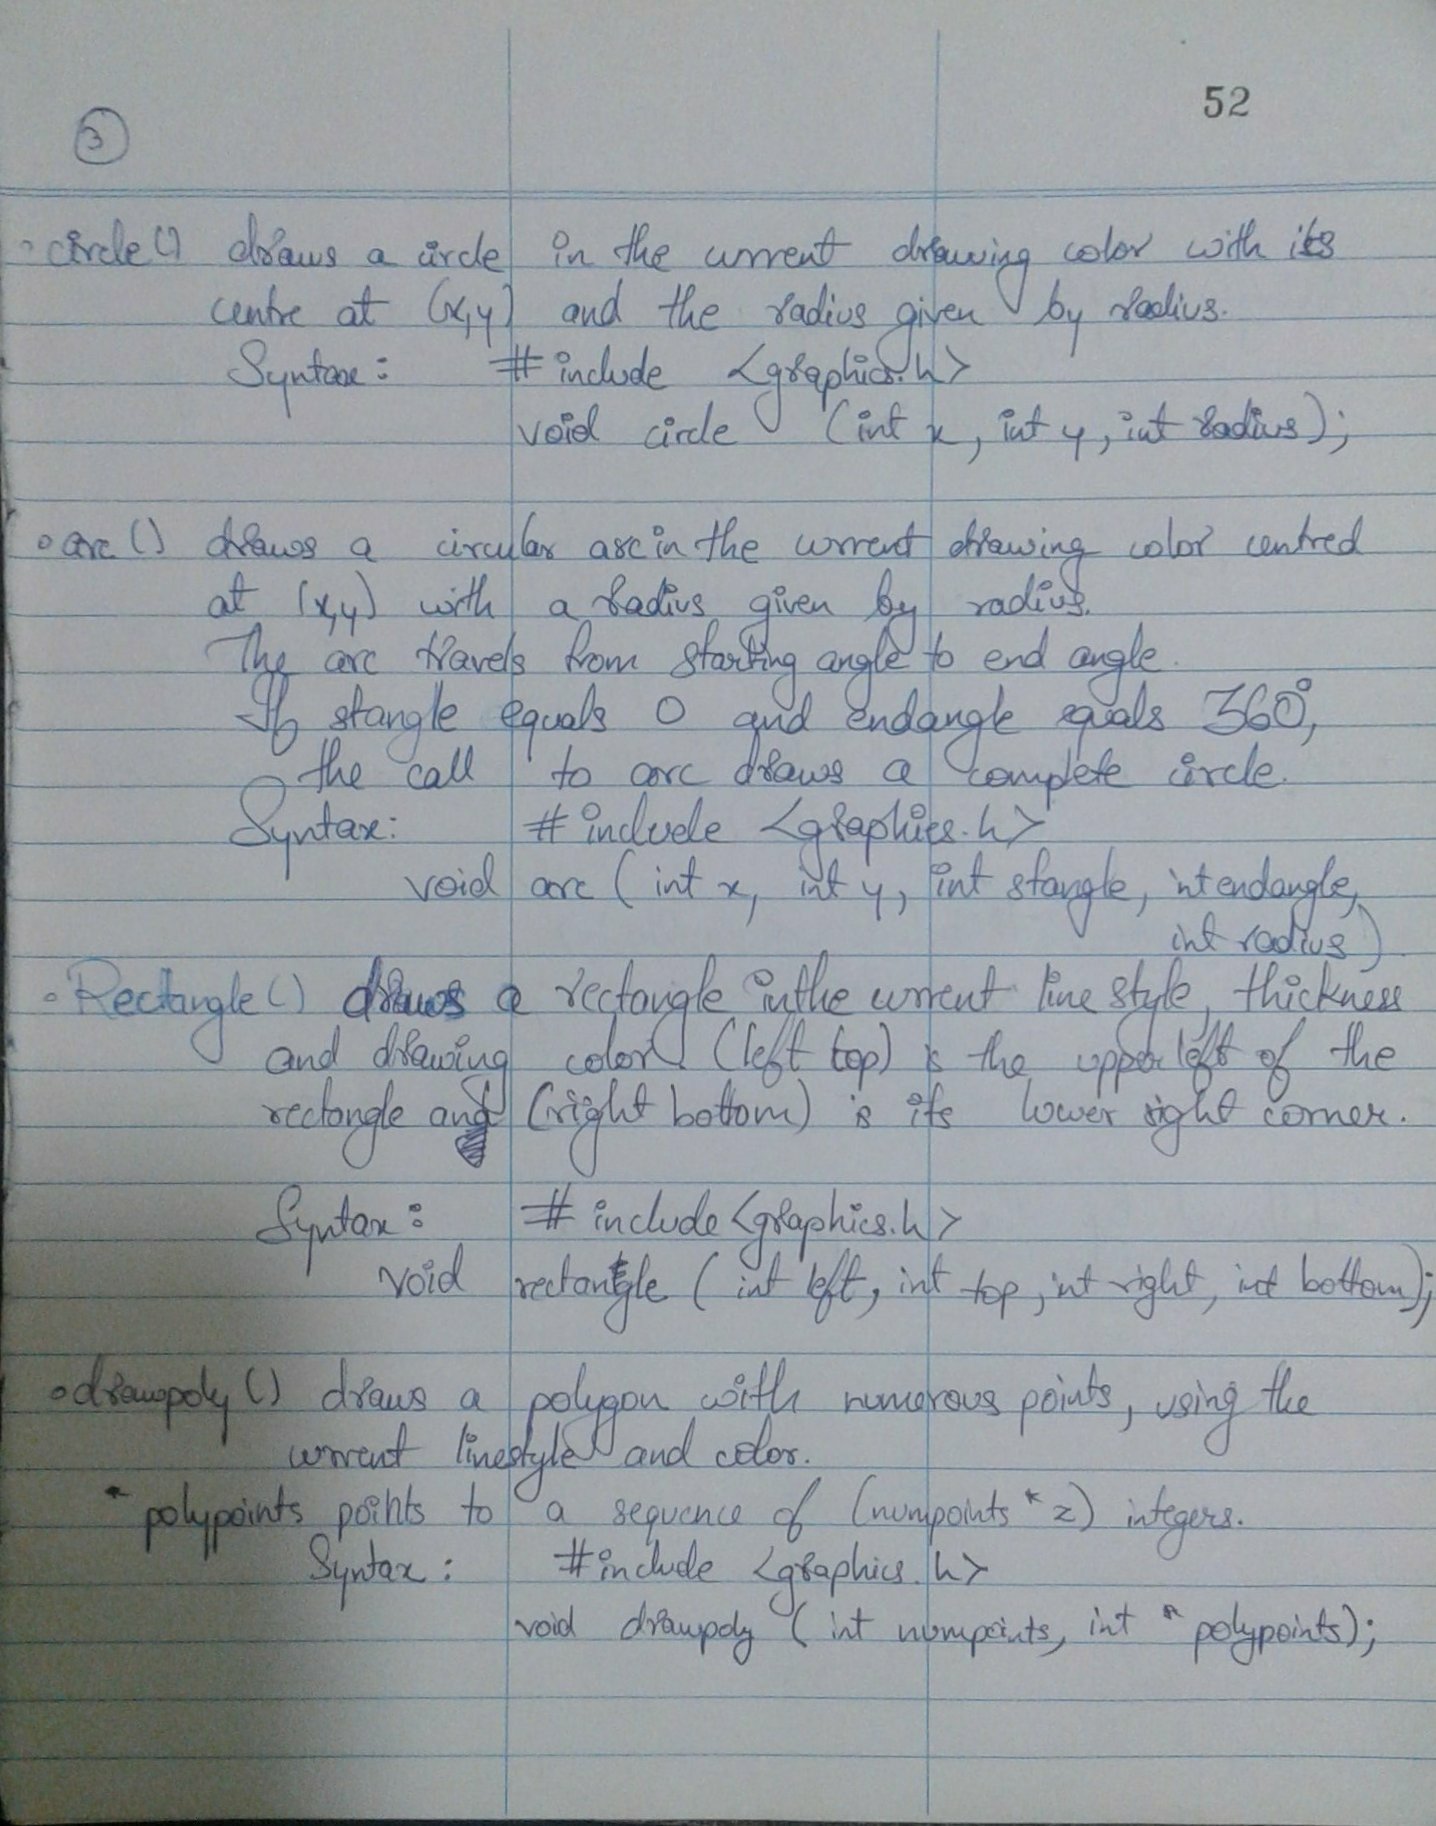 52
3
◦ circle() draws a circle in the current drawing color with its
centre at (x,y) and the radius given by radius.
Syntax: # include <graphics.h>
void circle (int x, int y, int radius);
◦ arc () draws a circular arc in the current drawing color centred
at (x,y) with a radius given by radius.
The arc travels from starting angle to end angle.
If stangle equals 0 and endangle equals 360°,
the call to arc draws a complete circle.
Syntax: # include <graphics.h>
void arc (int x, int y, int stangle, int endangle,
int radius)
◦ Rectangle () draws a rectangle in the current line style, thickness
and drawing color (left top) is the upper left of the
rectangle and (right bottom) is its lower right corner.
Syntax: # include <graphics.h>
void rectangle (int left, int top, int right, int bottom);
◦ drawpoly () draws a polygon with numerous points, using the
current linestyle and color.
* polypoints points to a sequence of (numpoints * 2) integers.
Syntax: #include <graphics.h>
void drawpoly (int numpoints, int * polypoints);